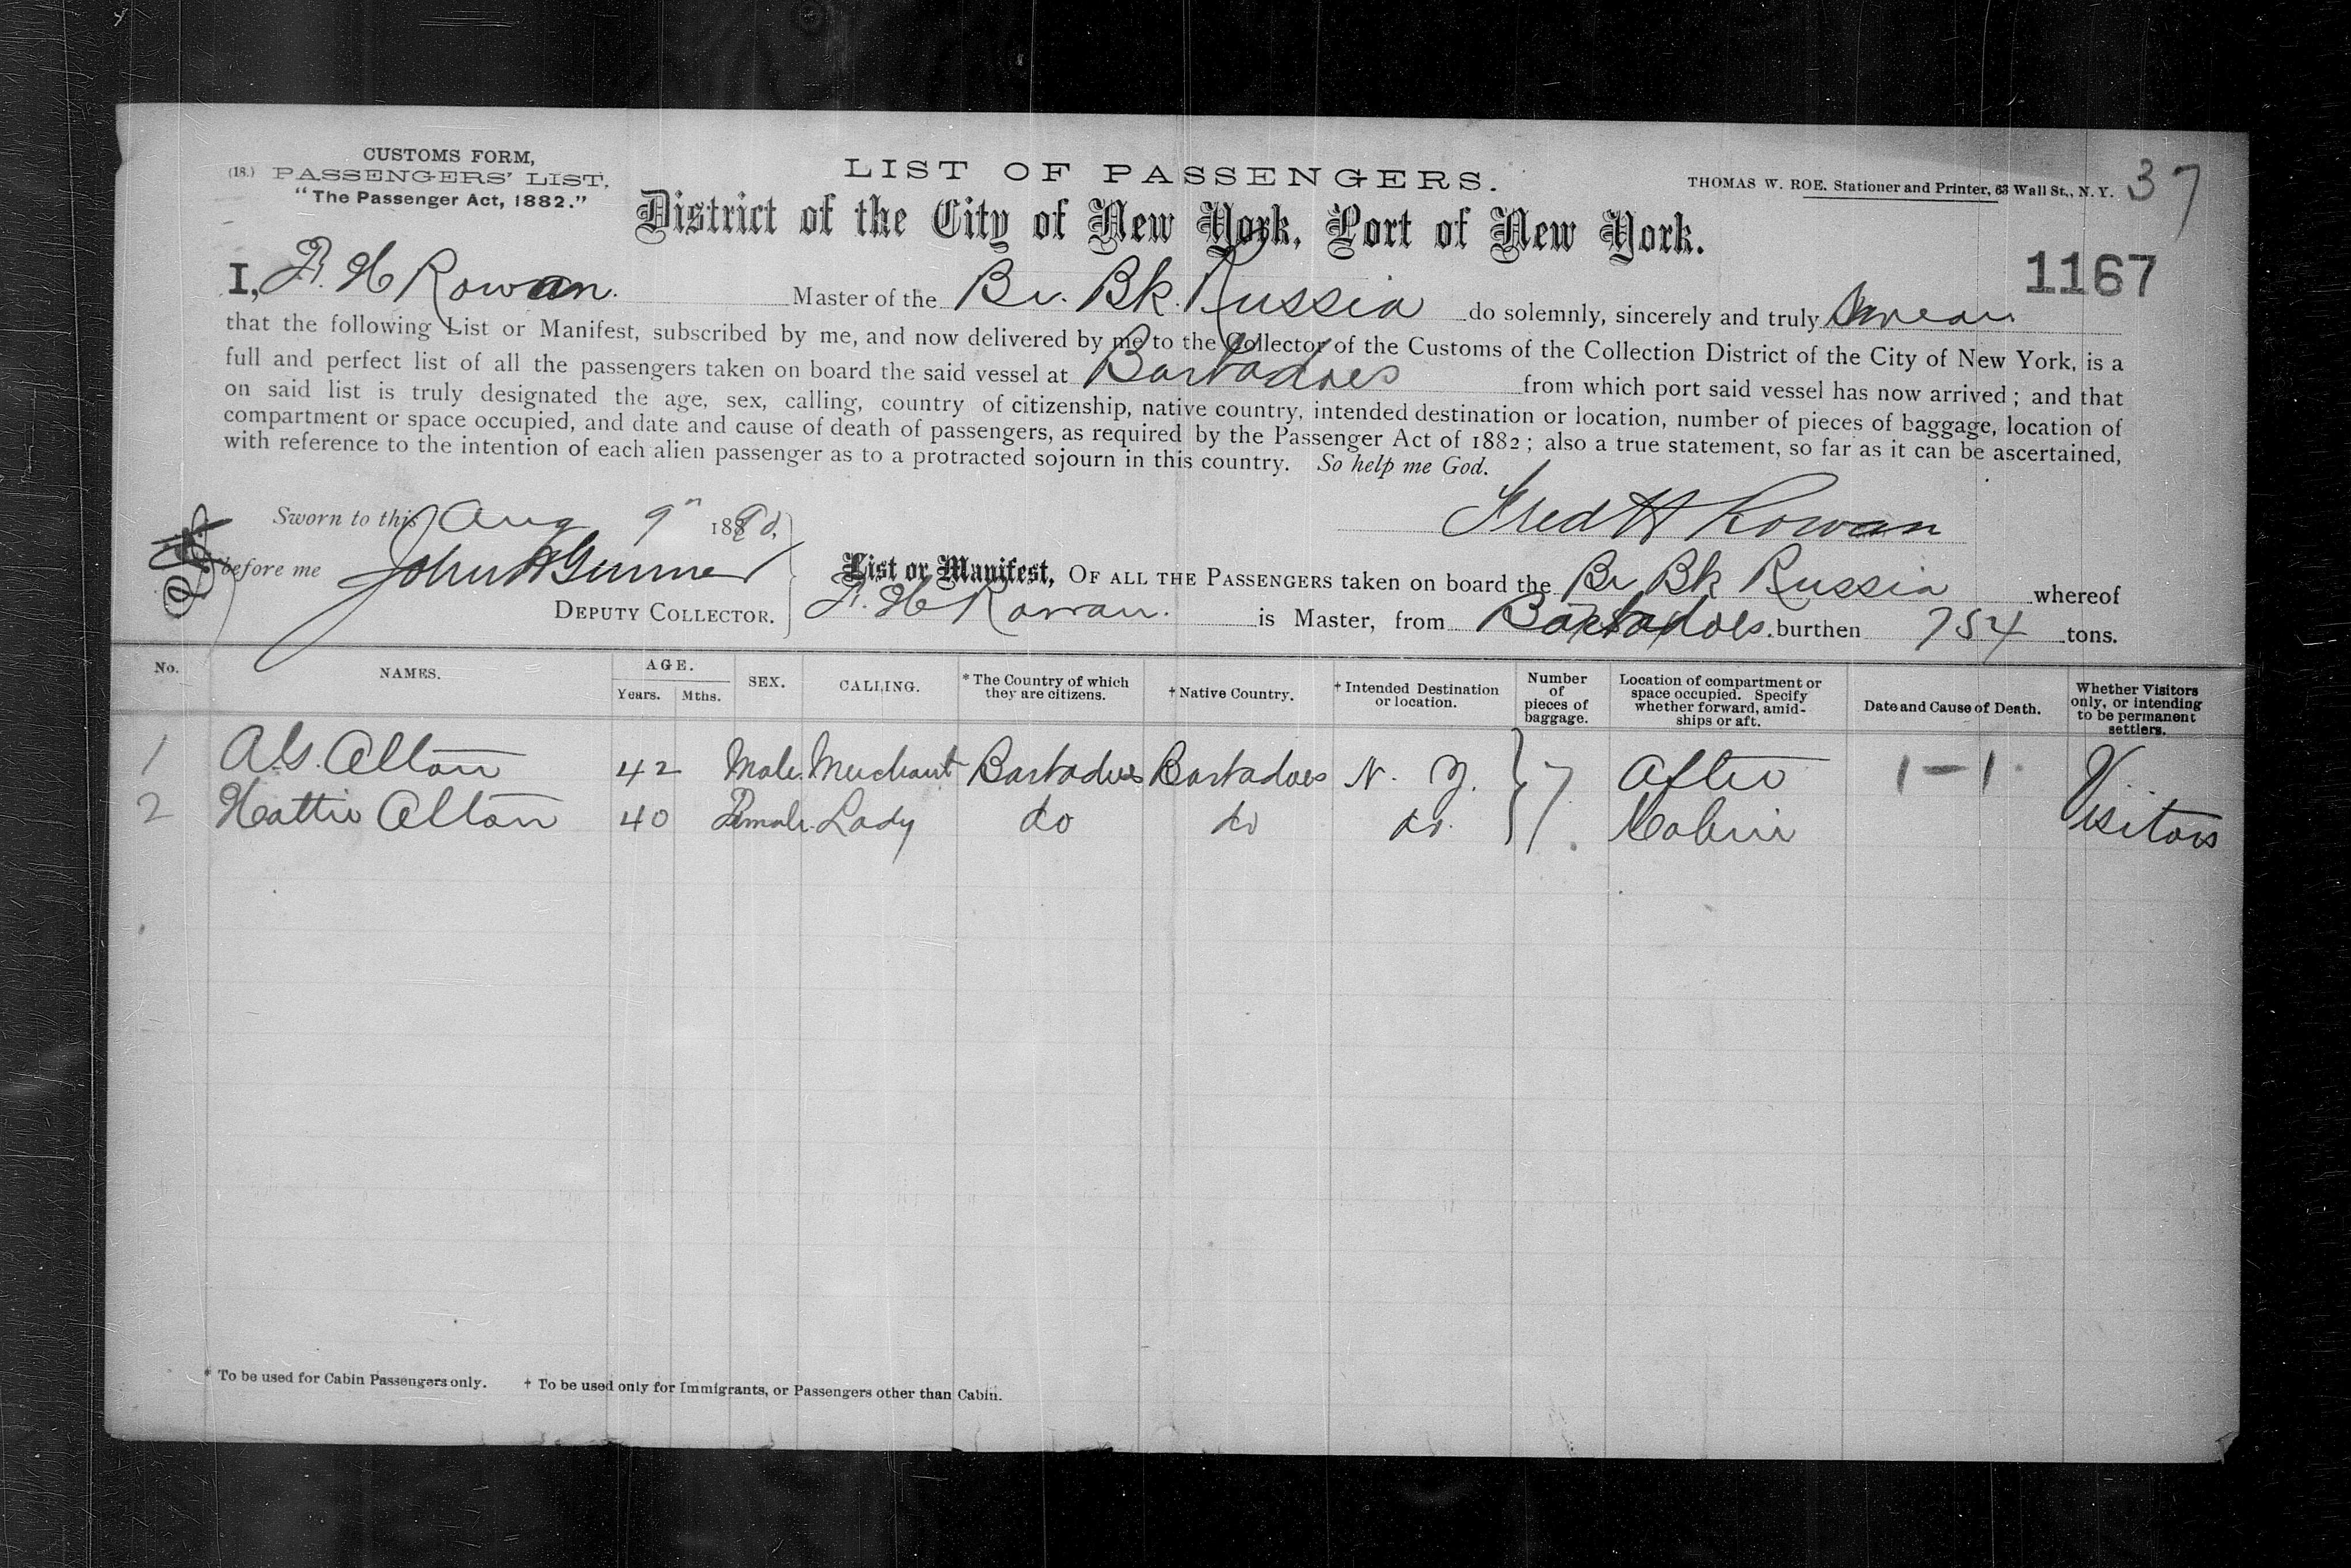 CUSTOMS FORM,
(18.) PASSENGERS' LIST,
"The Passenger Act, 1882."
LIST OF PASSENGERS.
THOMAS W. ROE. Stationer and Printer, 63 Wall St., N. Y.
37
District of the City of New York, Port of New York.
1167
I, F. H Rowan. Master of the Br. Bk. Russia do solemnly, sincerely and truly Swear
that the following List or Manifest, subscribed by me, and now delivered by me to the Collector of the Customs of the Collection District of the City of New York, is a
full and perfect list of all the passengers taken on board the said vessel at Barbadoes from which port said vessel has now arrived; and that
on said list is truly designated the age, sex, calling, country of citizenship, native country, intended destination or location, number of pieces of baggage, location of
compartment or space occupied, and date and cause of death of passengers, as required by the Passenger Act of 1882; also a true statement, so far as it can be ascertained,
with reference to the intention of each alien passenger as to a protracted sojourn in this country. So help me God.
Sworn to this Aug 9" 1890,
Fred H Rowan
before me
DEPUTY COLLECTOR.
List or Manifest, OF ALL THE PASSENGERS taken on board the Br Bk Russia whereof
F. H Rowan. is Master, from Barbadoes. burthen 754 tons.
No. NAMES. AGE. Years. Mths. SEX. CALLING. * The Country of which they are citizens. † Native Country. † Intended Destination or location. Number of pieces of baggage. Location of compartment or space occupied. Specify whether forward, amid-ships or aft. Date and Cause of Death. Whether Visitors only, or intending to be permanent settlers.
1 Alton 42 Male. Merchant Barbadoes Barbadoes N. Y. 7. After 1-1
2 Hattie Alton 40 Female. Lady do do do. Cabin Visitors
* To be used for Cabin Passengers only. † To be used only for Immigrants, or Passengers other than Cabin.